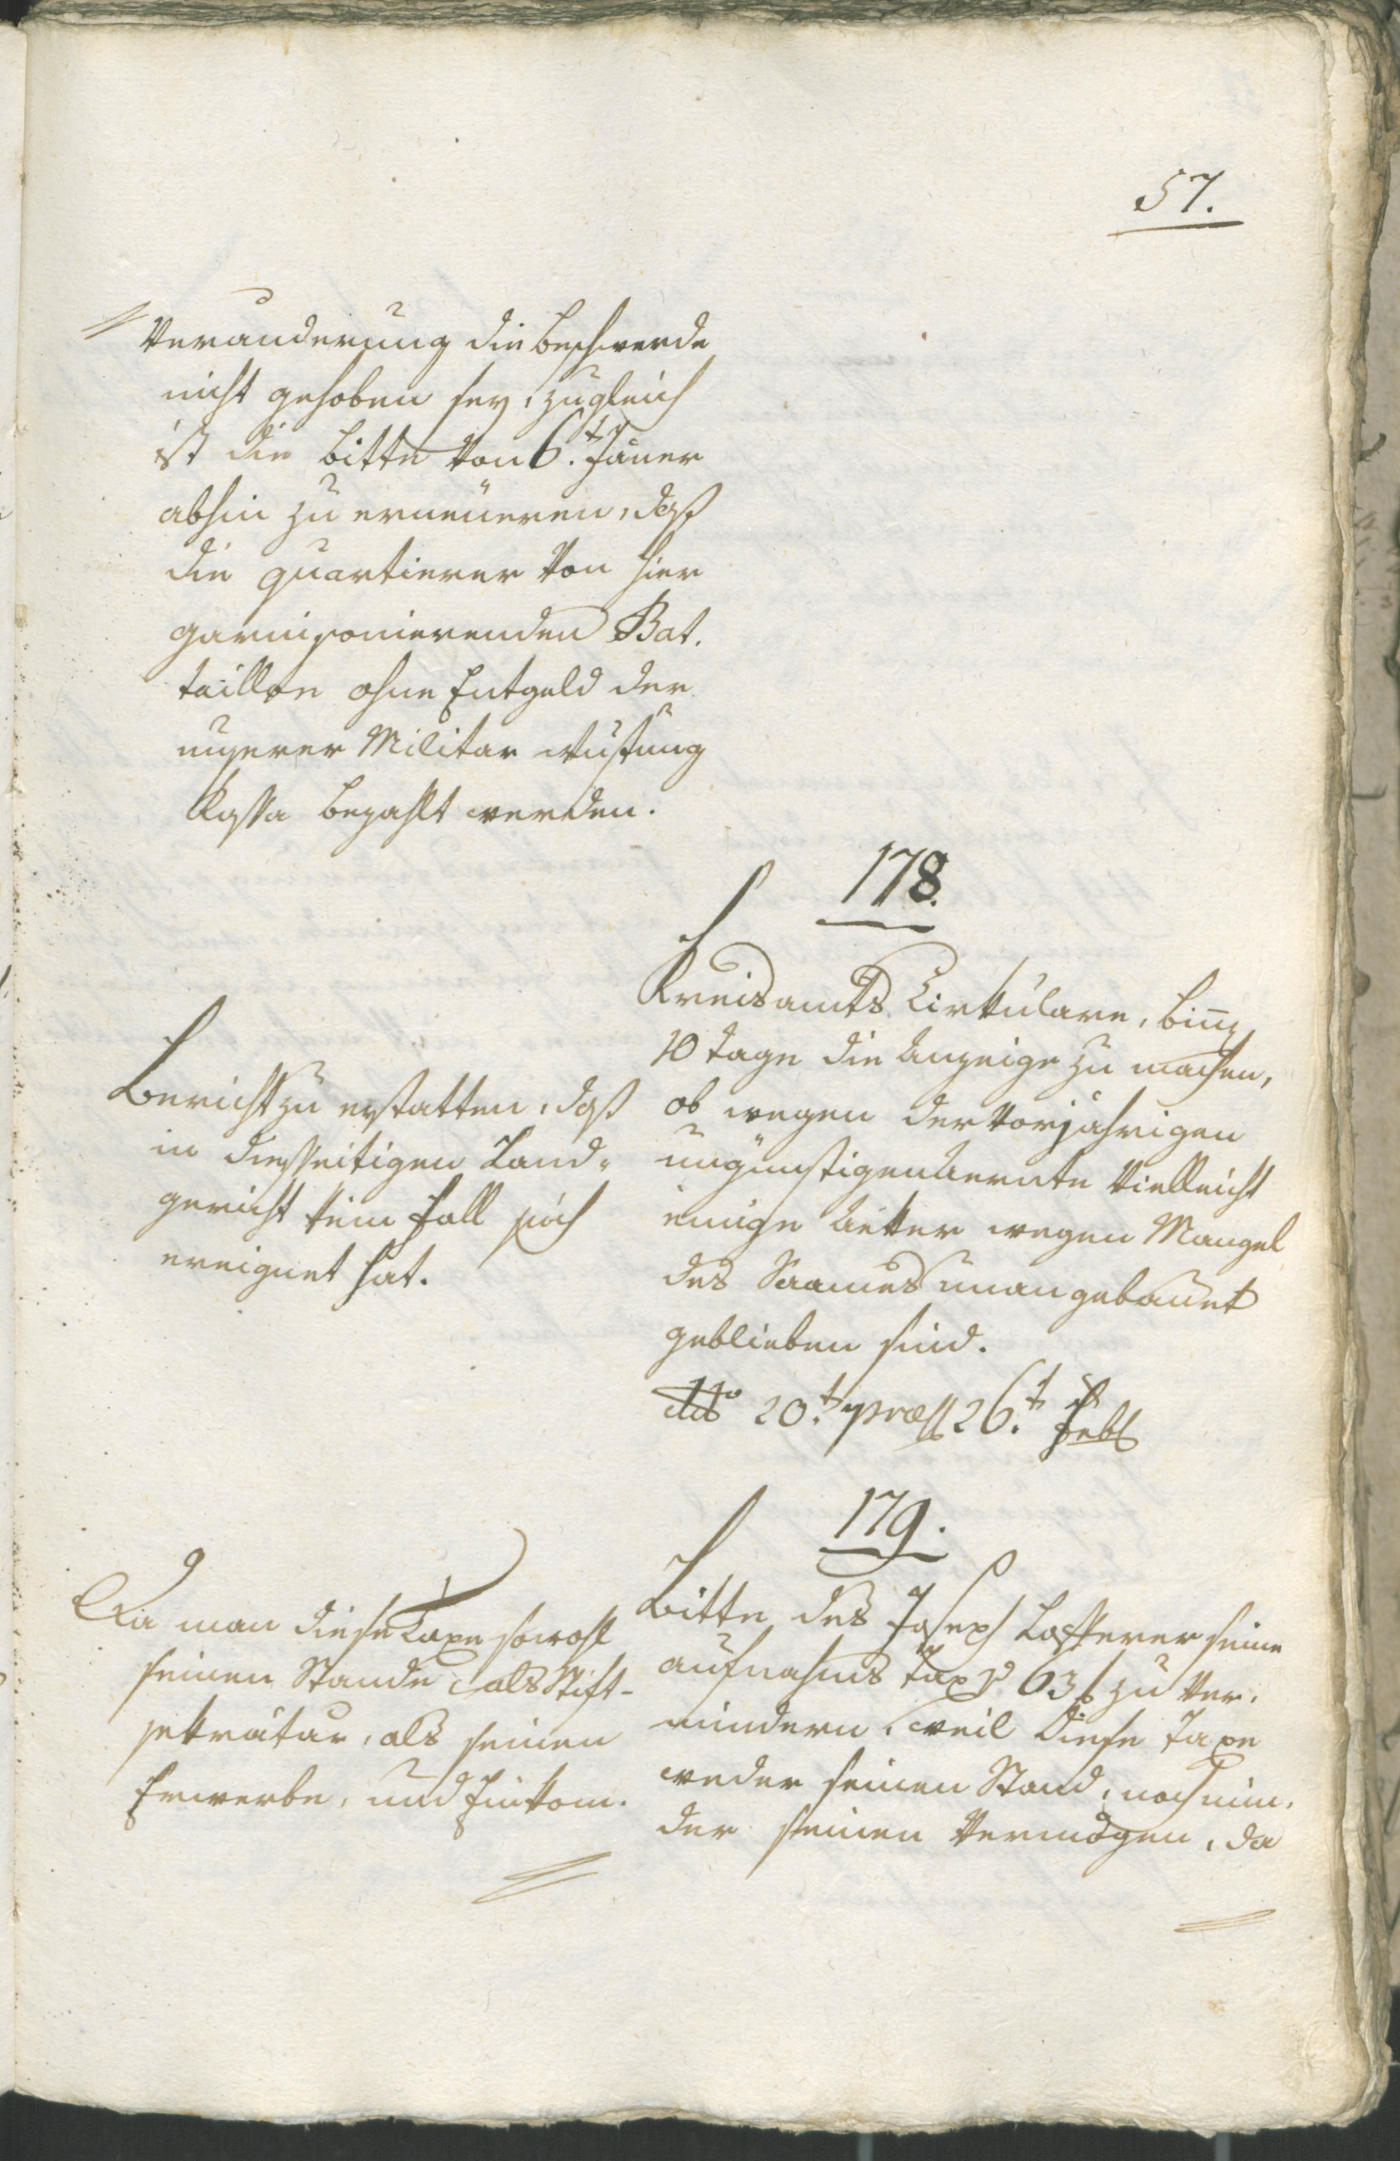 57.
Veranderung die Beschwerde
nicht gehoben sey, zugleich
ist die Bitte von 6.t Jäner
abhin zu erneüeren, daß
die Quartierer von hier
garnisonierenden Bat.
taillon ohne Entgeld der
unserer Militar
Kassa bezahlt werden.
178.
Kreisamts Cirkulare, binn
10 tage die Anzeige zu machen,
ob wegen der vorjährigen
ungünstigen Aernte vielleicht
einige Aeker wegen Mangel
des Saames unangebauet
geblieben sind.
dto 20.t præss 26.t Feb
Bericht zu erstatten, daß
in diesseitigen Land-
gericht kein Fall sich
ereignet hat.
179.
Bitte des Joseph Lasserer seine
aufnahms Tax pr 63 f zu ver.
mindern, weil diese Taxe
weder seinen Stand, noch min.
der seinen Vermögen, da
Da man diese Taxe sowohl
seinen Stande als Stift-
sekretär, als seinen
Erwerbe, und Einkom.